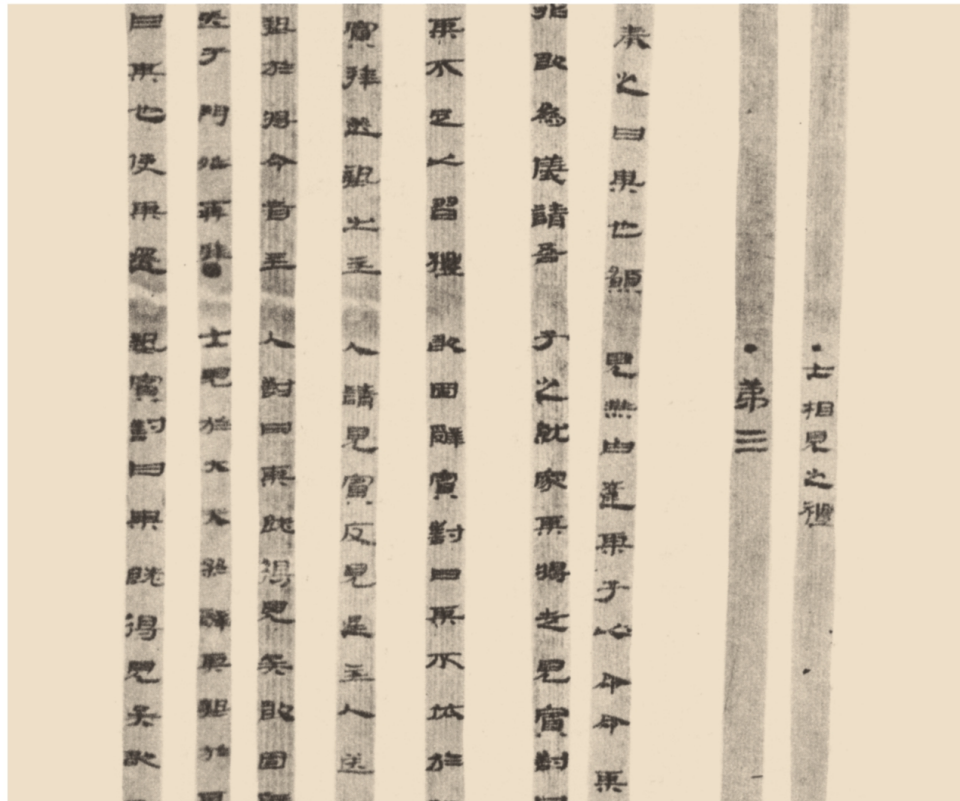 •士相見之禮
•弟三
奉之曰某也願見無由達某子以命命某
非敢為儀請吾子之就家某將走見賓對
某不足以習禮敢固辭賓對曰某不依於
賓拜送摯出主人請見賓反見退主人送
摯於將命者主人對曰某既得見矣敢固
送于門外再拜●士見於大夫終辭其摯於
曰某也使某還摯賓對曰某既得見矣敢